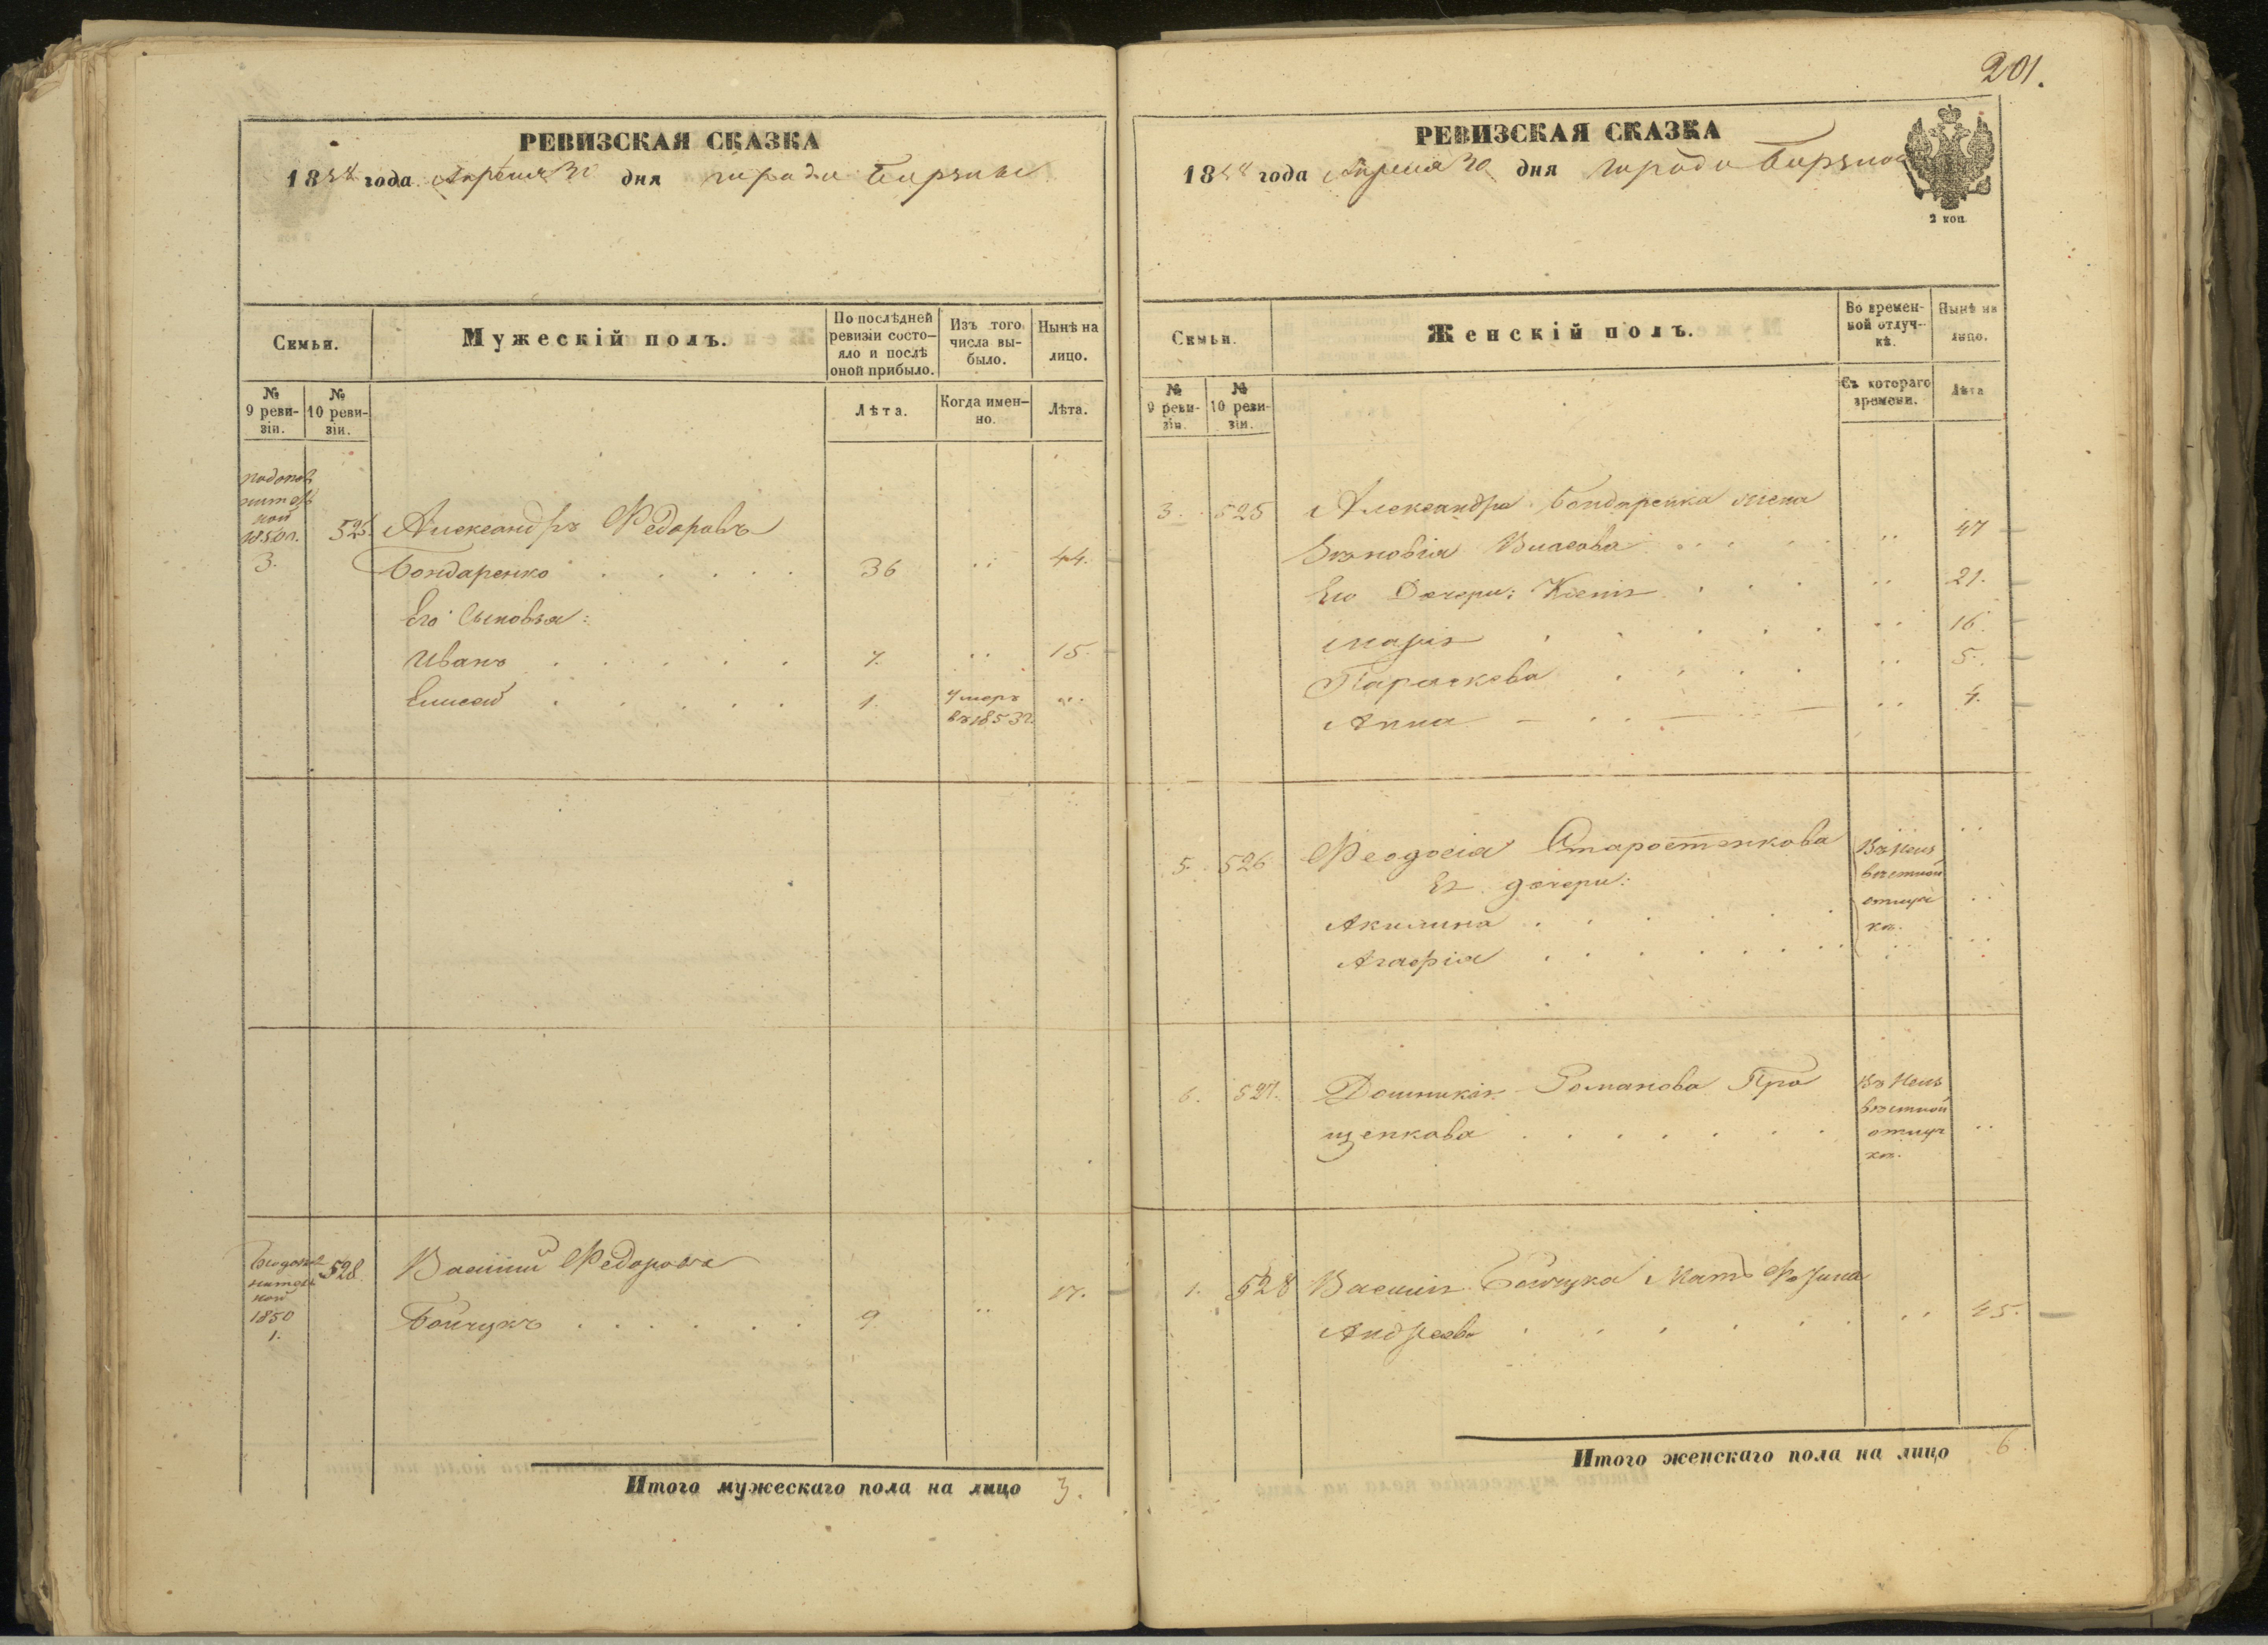 РЕВИЗСКАЯ СКАЗКА
1858 года Апреля 30 дня города Борзны
Семьи.
Мужескій полъ.
По послѣдней ревизіи состо-
яло и послѣ
оной прибыло.
Изъ того
числа вы-
было.
Нынѣ на
лицо.
№
9 реви-
зіи.
№
10 реви-
зіи.
Лѣта.
Когда имен-
но.
Лѣта.
ной
1850 г.
3.
525. Александръ Федоровъ
Бондаренко 36 44.
Его Сыновья:
Иванъ 7. 15.
Елисей 1. Умеръ
въ 1853 г.
ной
1850
1.
528. Василий Федоровъ
Бойчукъ 9 17.
Итого мужескаго пола на лицо 3.
201.
РЕВИЗСКАЯ СКАЗКА
1858 года Апреля 30 дня города Борзны
2 коп
Семьи.
Женскій полъ.
Во времен-
ной отлуч-
кѣ.
Нынѣ на
лицо.
№
9 реви-
зіи.
№
10 реви-
зіи.
Съ котораго
времени.
Лѣта
3. 525 Александра Бондаренка жена
Зѣновія Власова 47
Его Дочери: Ксенія 21.
Марія 16.
Параскева 5.
Анна 4.
5. 526 Феодосія Старостенкова
Ея дочери:
Акилина
Агафія
Въ Неиз
вестной
отлуч
кѣ.
6. 527. Домникія Романова Про
щенкова
Въ Неиз
вестной
отлуч
кѣ.
1. 528 Василія Бойчука Мать
Андреева 45.
Итого женскаго пола на лицо 6